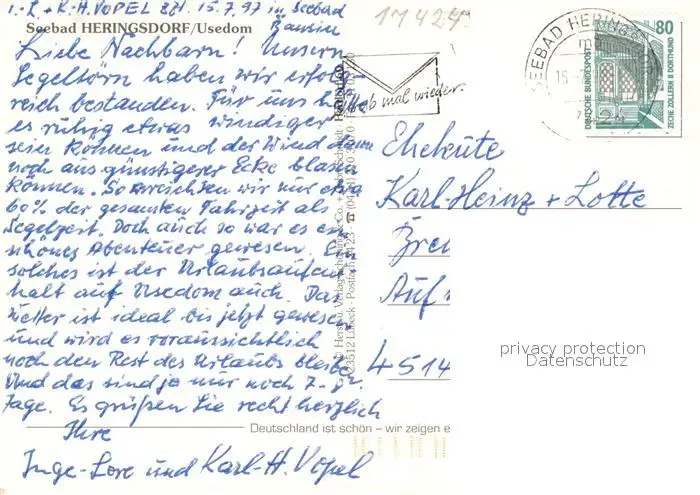 I.-L. + K.-H. VOPEL zZt. 15.7.97 in Seebad
Bansin
Seebad HERINGSDORF/Usedom
Liebe Nachbarn! Unseren
Segeltörn haben wir erfolg
reich bestanden. Für uns h
es ruhig etwas windiger
sein können und der Wind dann
noch aus günstigerer Ecke blasen
können. So erreichten wir nur etwa
60% der gesamten Fahrzeit als
Segelzeit. Doch auch so war es ein
schönes Abenteuer gewesen. Ein
solches ist der Urlaubsaufent
halt auf Usedom auch. Das
Wetter ist ideal bis jetzt gewesen
und wird es voraussichtlich
noch den Rest des Urlaubs bleiben
Und das sind ja nur noch 7
Tage. Es grüßen Sie recht herzlich
Ihre
Inge-Lore und Karl-H. Vopel
17424
SEEBAD HERINGS
15
80
DEUTSCHE BUNDESPOST
ZECHE ZOLLERN II DORTMUND
mal wieder.
Eheleute
Karl-Heinz + Lotte
Bre
Auf
4514
23512 Lübeck · Postfach
Deutschland ist schön – wir zeigen e
privacy protection
Datenschutz